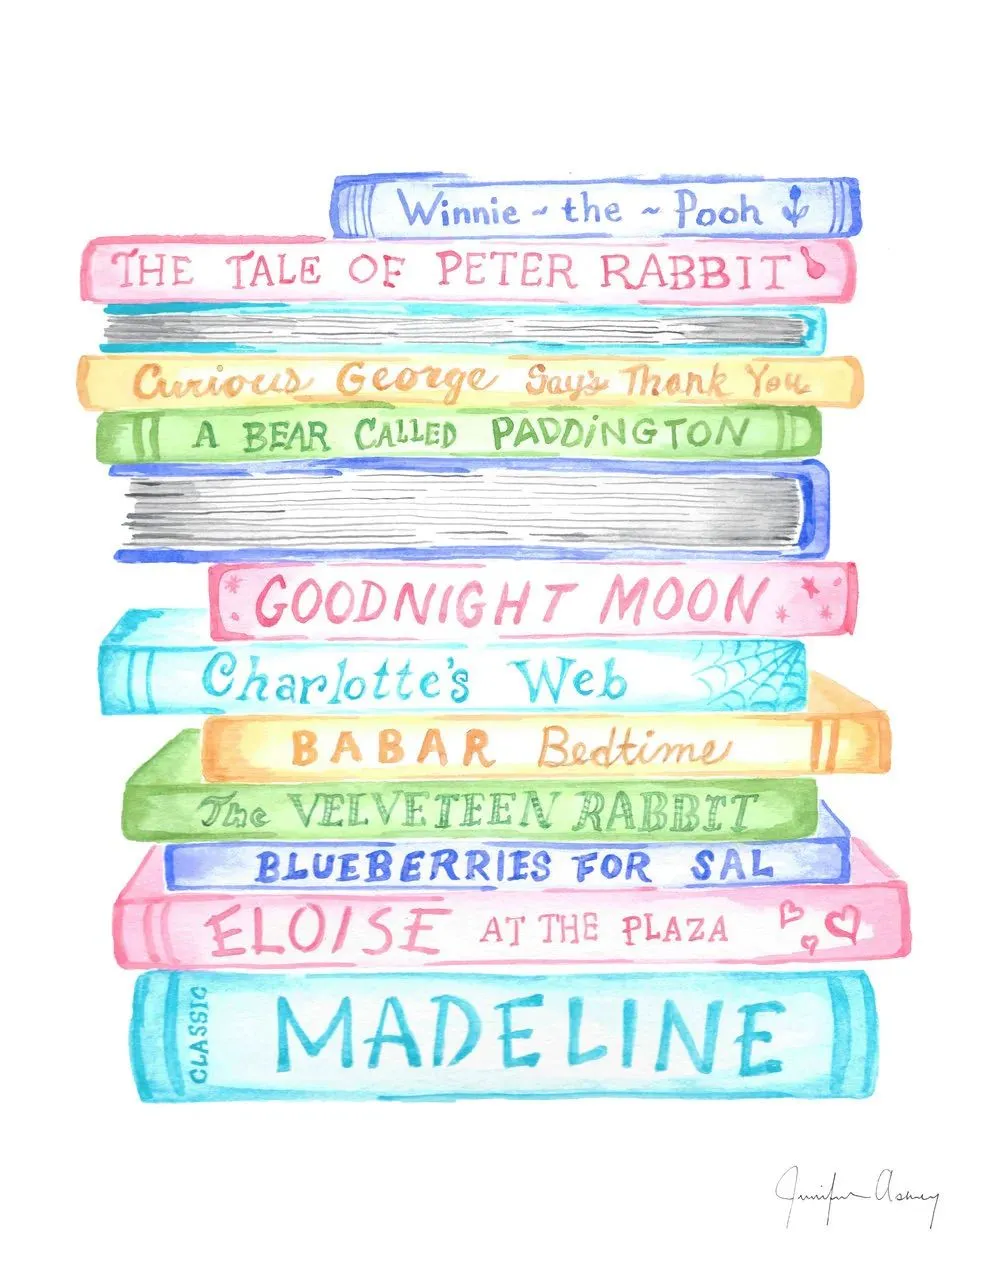 Winnie ~ the ~ Pooh
THE TALE OF PETER RABBIT
Curious George Says Thank You
A BEAR CALLED PADDINGTON
GOODNIGHT MOON
Charlotte's Web
BABAR Bedtime
The VELVETEEN RABBIT
BLUEBERRIES FOR SAL
ELOISE AT THE PLAZA
CLASSIC
MADELINE
Jennifer